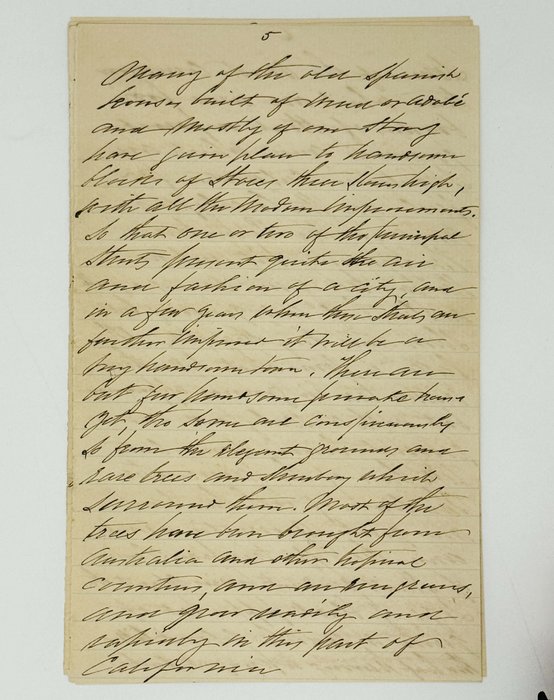 5
Many of the old Spanish
houses built of mud or adobe
and mostly of one story
have given place to handsome
blocks of stores three stories high,
with all the modern improvements.
So that one or two of the principal
streets present quite the air
and fashion of a city, and
in a few years when these streets are
further improved it will be a
very handsome town. There are
but few handsome private houses
yet, tho some are conspicuously
so from the elegant grounds and
rare trees and shrubbery which
surround them. Most of the
trees have been brought from
Australia and other tropical
countries, and are evergreens,
and grow easily and
rapidly in this part of
California